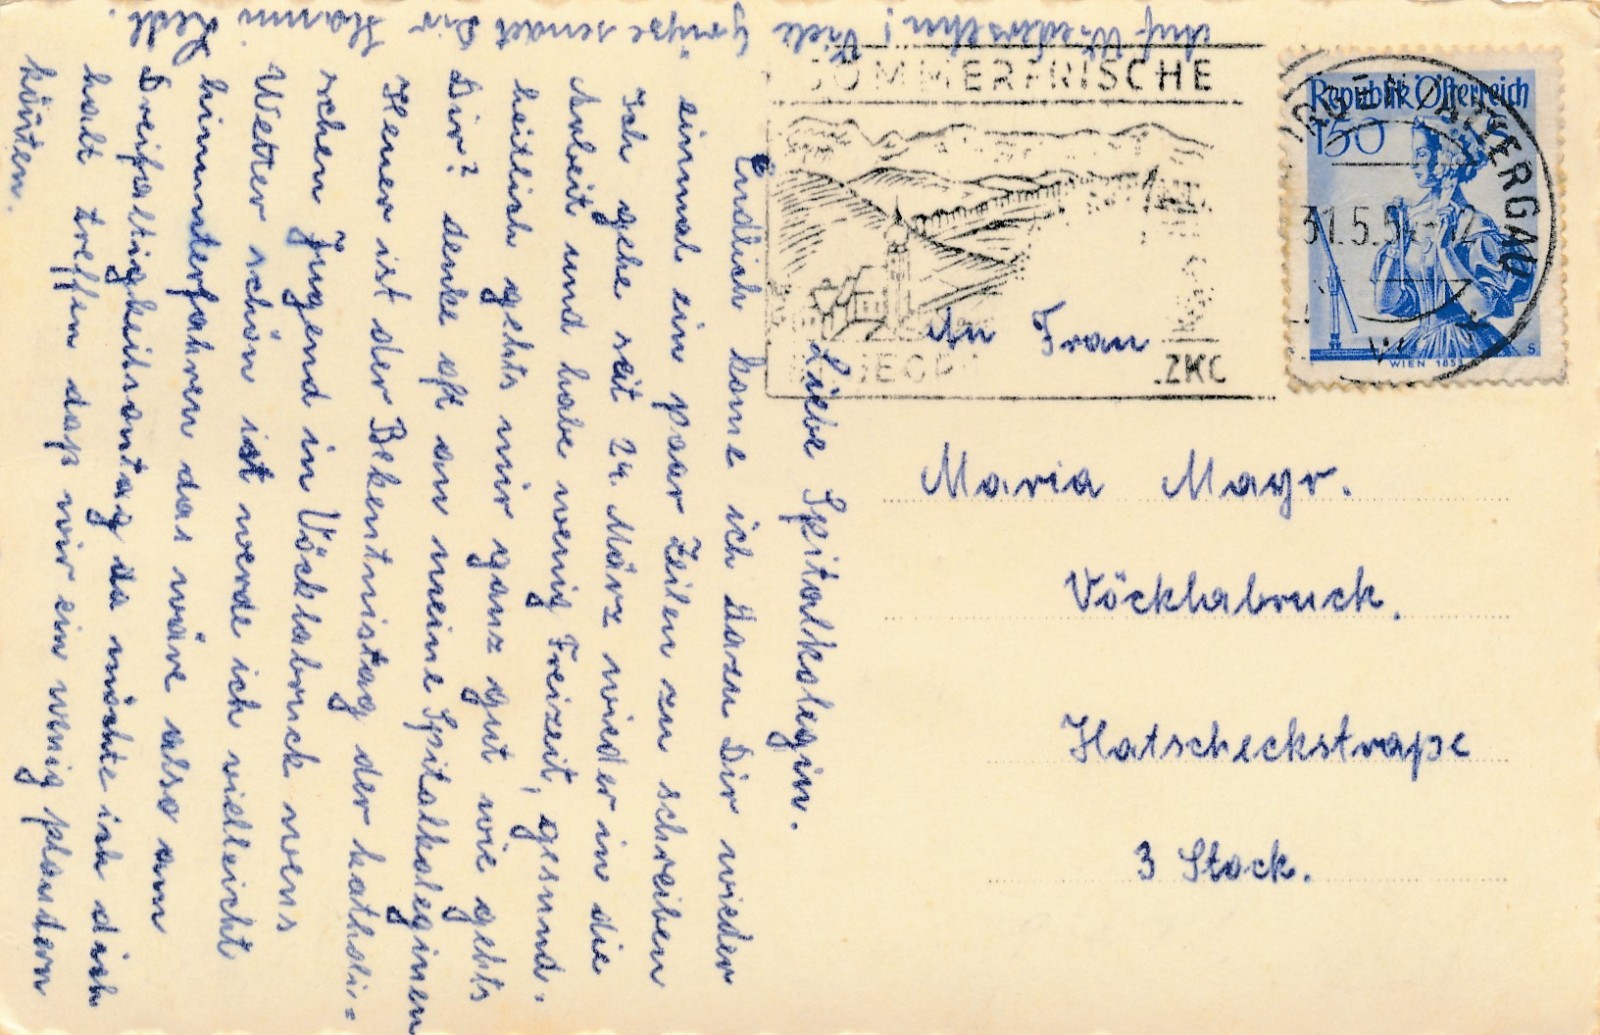 Liebe Spitalkolegin.
Endlich kome ich dazu Dir wieder
einmal ein paar Zeilen zu schreiben
Ich gehe seit 24. März wieder in die
Arbeit und habe wenig Freizeit, gesund-
heitlich gehts mir ganz gut wie gehts
Dir? denke oft an meine Spitalkoleginen
Heuer ist der Bekentnistag der katholi-
schen Jugend in Vöcklabruck wens
Wetter schön ist werde ich vielleicht
hinunterfahren das wäre also am
Dreifaltigkeitsontag da möchte ich dich
halt treffen dasß wir ein wenig plaudern
könten.
Auf Wiedersehn! Viele Grüße sendet Dir Hanni
SOMMERFRISCHE
ZKC
Republik Österreich
150
WIEN 185
S
31.5.5
An Frau
Maria Mayr.
Vöcklabruck.
Hatscheckstraße
3 Stock.